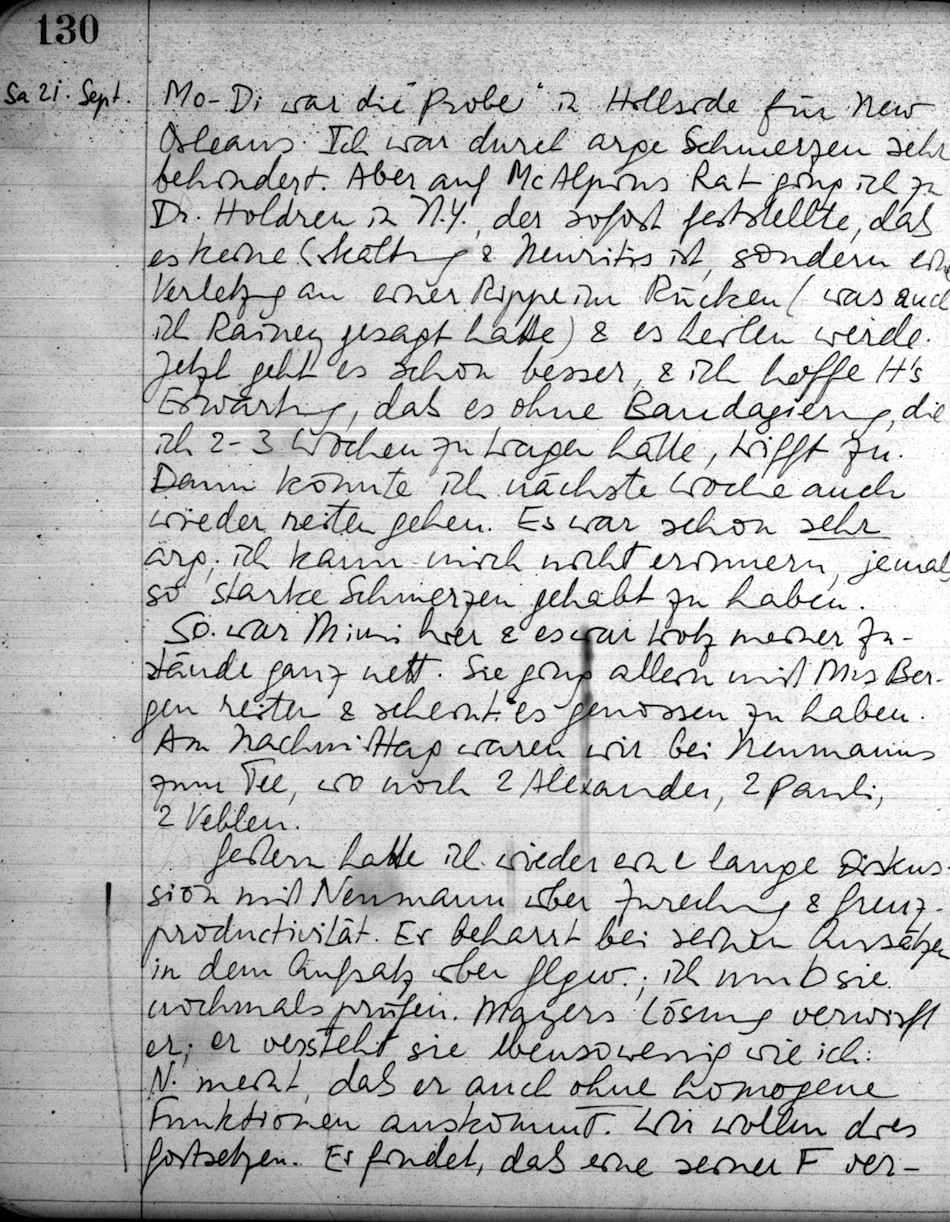 130
Sa 21. Sept.
Mo-Di war die "Probe" in Hillside für New
Orleans. Ich war durch arge Schmerzen sehr
behindert. Aber auf McAlpins Rat ging ich zu
Dr. Holdren in N.Y., der sofort feststellte, daß
es keine Erkältung & Neuritis ist, sondern eine
Verletzg an einer Rippe im Rücken (was auch
ich Rainey gesagt hatte) & es heilen werde.
Jetzt geht es schon besser, & ich hoffe H's
Erwartung, daß es ohne Bandagierung, die
ich 2-3 Wochen zu tragen hätte, trifft zu.
Dann könnte ich nächste Woche auch
wieder reiten gehen. Es war schon sehr
arg; ich kann mich nicht erinnern, jemals
so starke Schmerzen gehabt zu haben.
So. war Mimi hier & es war trotz meiner Zu-
stände ganz nett. Sie ging allein mit Mis Ber-
gen reiten & scheint es genossen zu haben.
Am Nachmittag waren wir bei Neumanns
zum Tee, wo noch 2 Alexander, 2 Pauli,
2 Veblen.
Gestern hatte ich wieder eine lange Diskus-
sion mit Neumann über Zurechng & Grenz-
productivität. Er beharrt bei seinen Ansätzen
in dem Aufsatz über Glgw.; ich muß sie
nochmals prüfen. Mayers Lösung verwirft
er; er versteht sie ebensowenig wie ich.
N. meint, daß er auch ohne homogene
Funktionen auskommt. Wir wollen dies
fortsetzen. Er findet, daß eine seiner F ver-